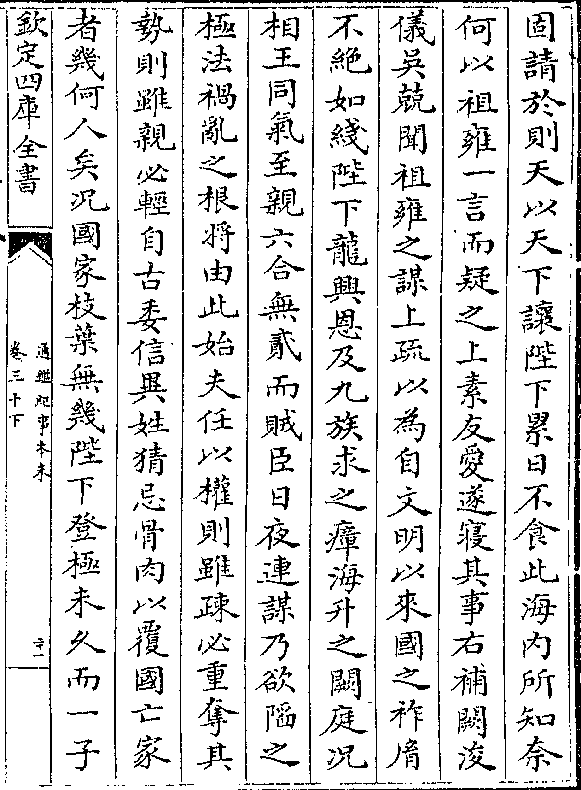 固請於則天以天下讓陛下累日不食此海内所知奈
何以祖雍一言而疑之上素友愛遂寢其事右補闕浚
儀吳兢聞祖雍之謀上疏以為自文明以來國之祚㣧
不絶如綫陛下龍興恩及九族求之瘴海升之闕庭况
相王同氣至親六合無貳而賊臣日夜連謀乃欲陷之
極法禍亂之根将由此始夫任以權則雖疎必重奪其
勢則雖親必輕自古委信異姓猜忌骨肉以覆國亡家
者幾何人矣况國家枝葉無幾陛下登極未久而一子
欽定四庫全書
通鑑紀事本末
卷三十下